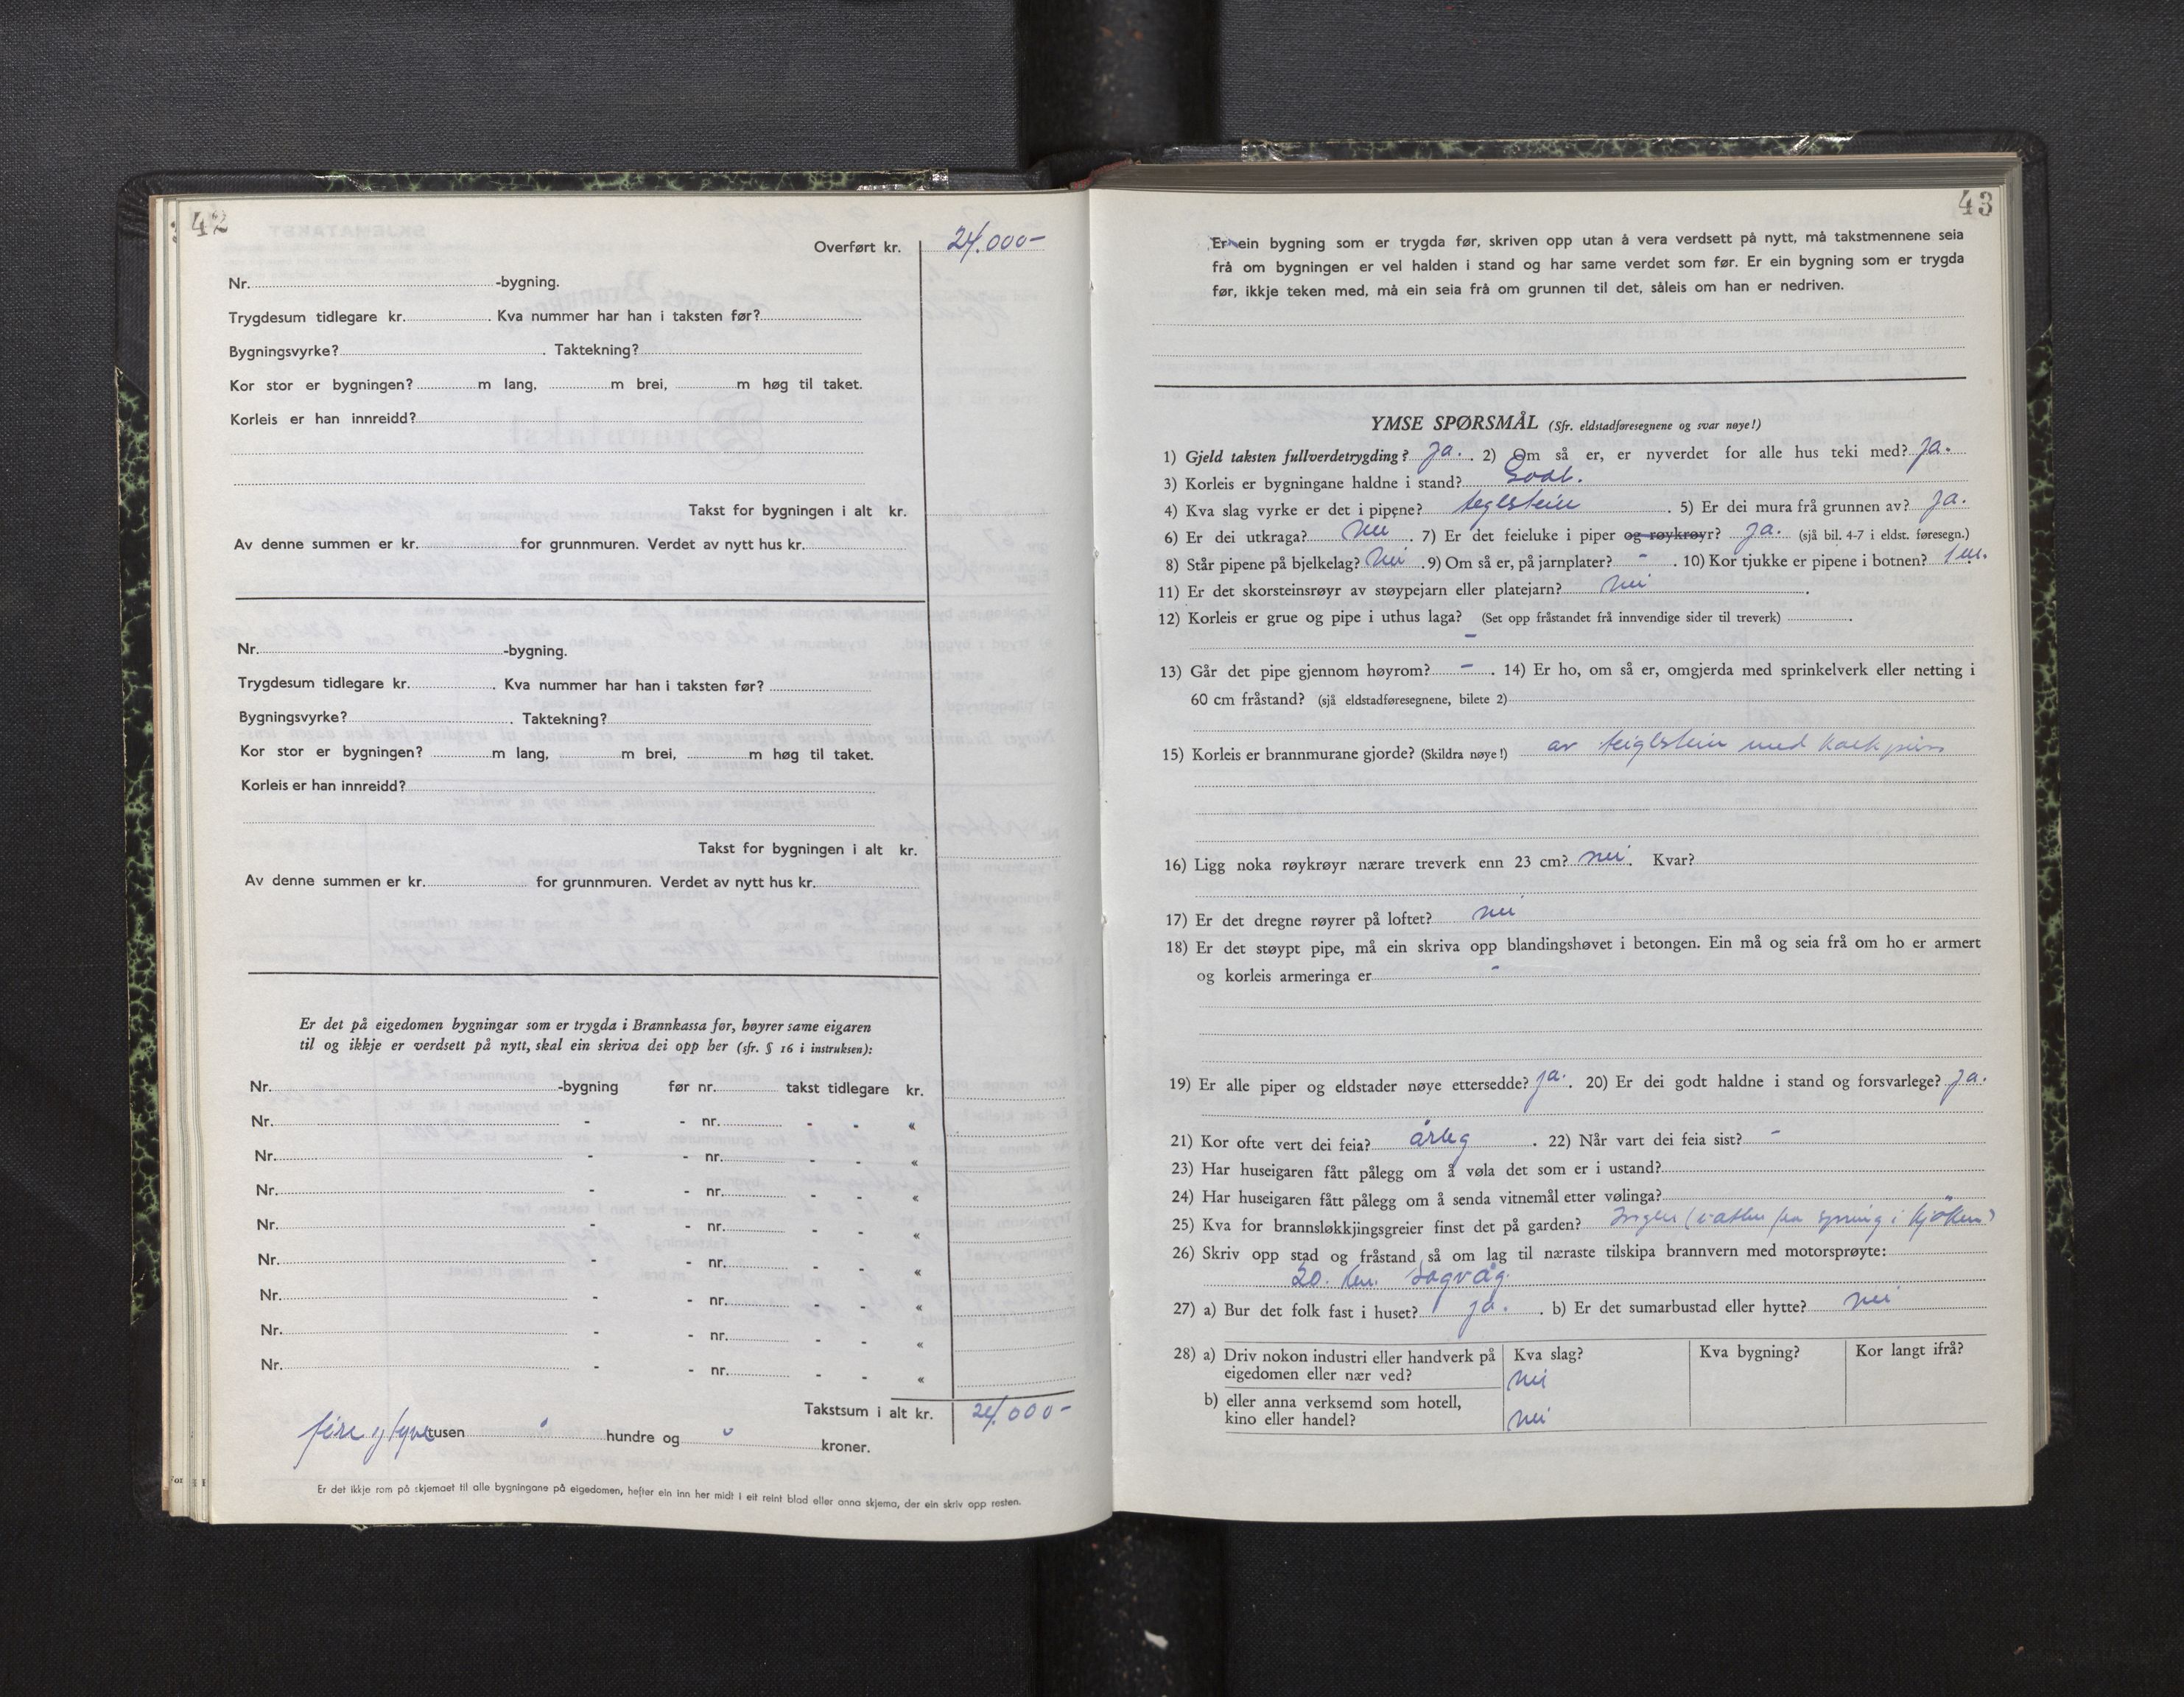 42
Overført kr. 24.000-
Nr. -bygning.
Trygdesum tidlegare kr. . Kva nummer har han i taksten før?
Bygningsvyrke? . Taktekning?
Kor stor er bygningen? m lang, m brei, m høg til taket.
Korleis er han innreidd?
Takst for bygningen i alt kr.
Av denne summen er kr. for grunnmuren. Verdet av nytt hus kr.
Nr. -bygning.
Trygdesum tidlegare kr. . Kva nummer har han i taksten før?
Bygningsvyrke? . Taktekning?
Kor stor er bygningen? m lang, m brei, m høg til taket.
Korleis er han innreidd?
Takst for bygningen i alt kr.
Av denne summen er kr. for grunnmuren. Verdet av nytt hus kr.
Er det på eigedomen bygningar som er trygda i Brannkassa før, høyrer same eigaren
til og ikkje er verdsett på nytt, skal ein skriva dei opp her (sfr. § 16 i instruksen):
Nr. -bygning før nr. takst tidlegare kr.
Nr. - - nr. - - «
Nr. - - nr. - - «
Nr. - - nr. - - «
Nr. - - nr. - - «
Nr. - - nr. - - «
Nr. - - nr. - - «
Nr. - - nr. - - «
Nr. - - nr. - - «
Takstsum i alt kr. 24.000-
fire og tyve tusen o hundre og o kroner.
Er det ikkje rom på skjemaet til alle bygningane på eigedomen, hefter ein inn her midt i eit reint blad eller anna skjema, der ein skriv opp resten.
43
Er ein bygning som er trygda før, skriven opp utan å vera verdsett på nytt, må takstmennene seia
frå om bygningen er vel halden i stand og har same verdet som før. Er ein bygning som er trygda
før, ikkje teken med, må ein seia frå om grunnen til det, såleis om han er nedriven.
YMSE SPØRSMÅL (Sfr. eldstadføresegnene og svar nøye!)
1) Gjeld taksten fullverdetrygding? ja. . 2) Om så er, er nyverdet for alle hus teki med? ja.
3) Korleis er bygningane haldne i stand? Godt.
4) Kva slag vyrke er det i pipene? teglstein . 5) Er dei mura frå grunnen av? ja.
6) Er dei utkraga? nei . 7) Er det feieluke i piper og røykrøyr? ja. (sjå bil. 4-7 i eldst. føresegn.)
8) Står pipene på bjelkelag? nei . 9) Om så er, på jarnplater? - . 10) Kor tjukke er pipene i botnen? 1 m.
11) Er det skorsteinsrøyr av støypejarn eller platejarn? nei .
12) Korleis er grue og pipe i uthus laga? (Set opp fråstandet frå innvendige sider til treverk) .
-
13) Går det pipe gjennom høyrom? - . 14) Er ho, om så er, omgjerda med sprinkelverk eller netting i
60 cm fråstand? (sjå eldstadføresegnene, bilete 2)
15) Korleis er brannmurane gjorde? (Skildra nøye!) av teiglstein med kalkpuss
16) Ligg noka røykrøyr nærare treverk enn 23 cm? nei. Kvar?
17) Er det dregne røyrer på loftet? nei
18) Er det støypt pipe, må ein skriva opp blandingshøvet i betongen. Ein må og seia frå om ho er armert
og korleis armeringa er -
19) Er alle piper og eldstader nøye ettersedde? ja. . 20) Er dei godt haldne i stand og forsvarlege? ja.
21) Kor ofte vert dei feia? årleg . 22) Når vart dei feia sist? -
23) Har huseigaren fått pålegg om å vøla det som er i ustand?
24) Har huseigaren fått pålegg om å senda vitnemål etter vølinga?
25) Kva for brannsløkkjingsgreier finst det på garden? spring i kjøken)
26) Skriv opp stad og fråstand så om lag til næraste tilskipa brannvern med motorsprøyte:
20. km. Sagvåg.
27) a) Bur det folk fast i huset? ja. . b) Er det sumarbustad eller hytte? nei
28) a) Driv nokon industri eller handverk på Kva slag? Kva bygning? Kor langt ifrå?
eigedomen eller nær ved? nei
b) eller anna verksemd som hotell,
kino eller handel? nei